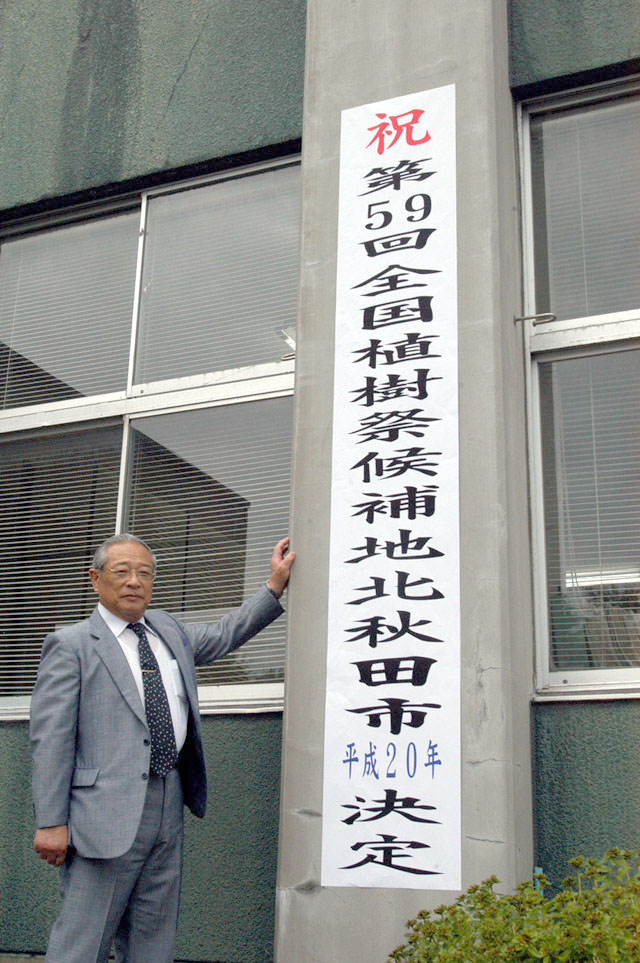 祝
第59回全国植樹祭候補地北秋田市
平成20年
決定